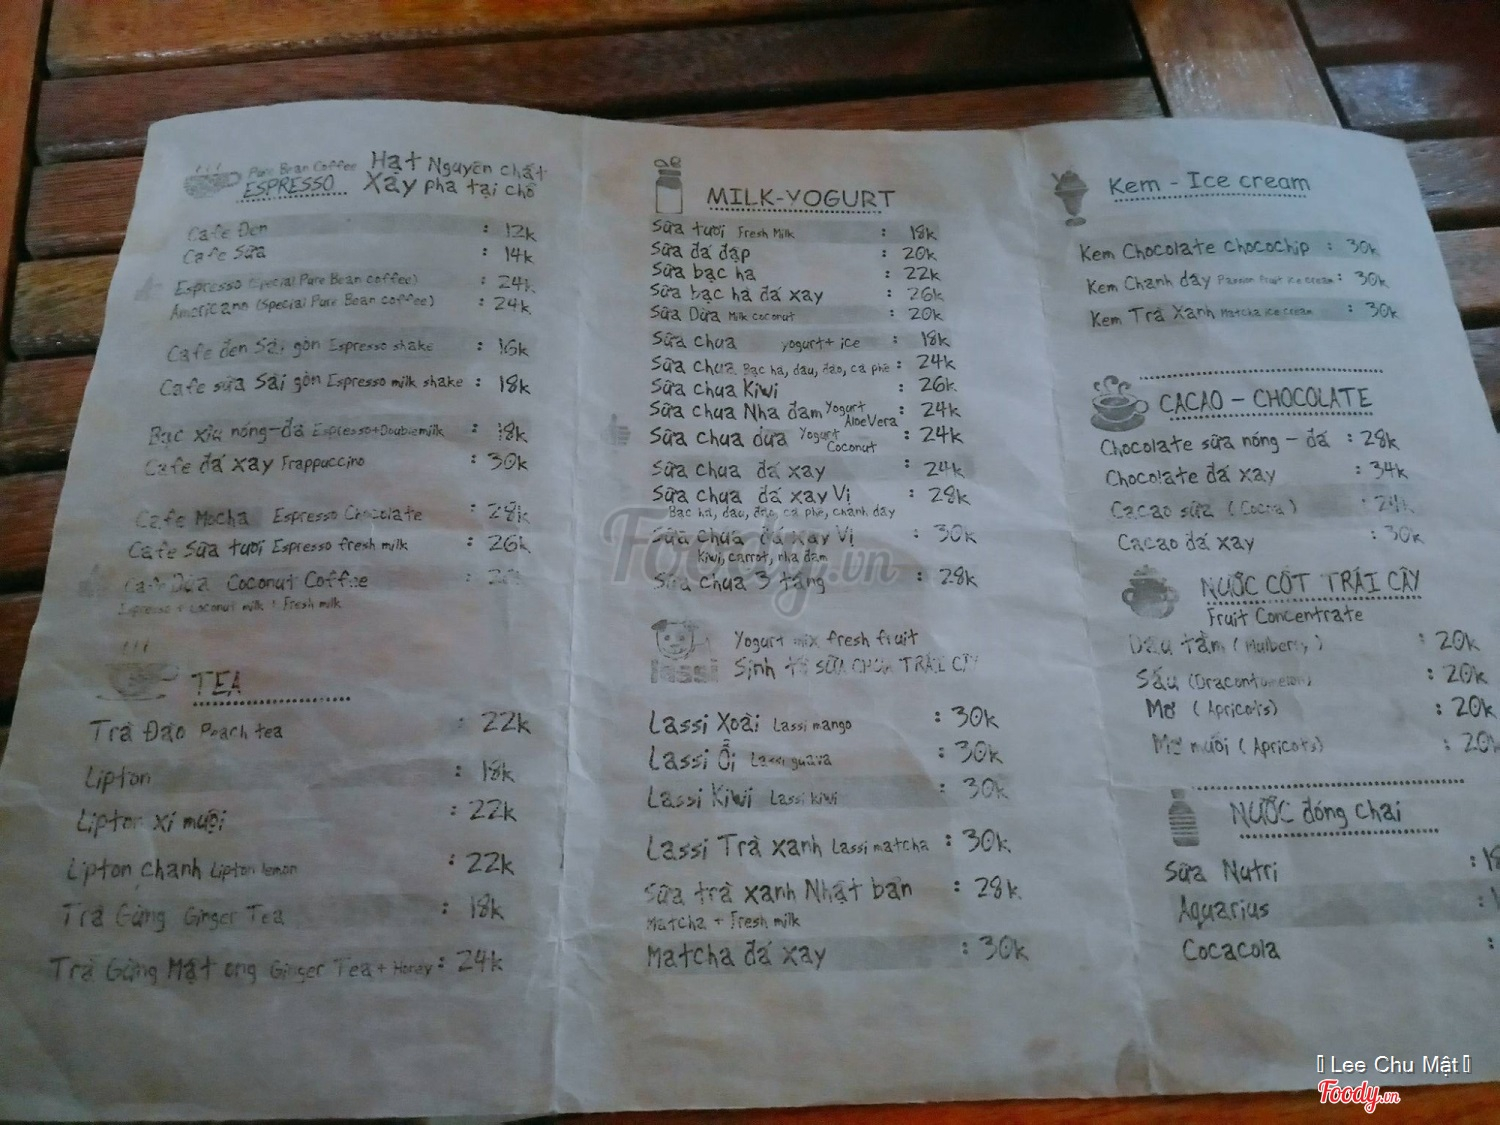 Pure Bean Coffee
ESPRESSO
Hạt Nguyên chất
Xay pha tại chỗ
Cafe Đen : 12k
Cafe Sữa : 14k
Espresso (Special Pure Bean coffee) : 24k
Americano (Special Pure Bean coffee) : 24k
Cafe đen Sài gòn Espresso shake : 16k
Cafe sữa Sài gòn Espresso milk shake : 18k
Bạc xỉu nóng-đá Espresso+Doublemilk : 18k
Cafe đá xay Frappuccino : 30k
Cafe Mocha Espresso Chocolate : 28k
Cafe Sữa tươi Espresso fresh milk : 26k
Cafe Dừa Coconut Coffee :
Espresso + Coconut milk + Fresh milk
TEA
Trà Đào Peach tea : 22k
Lipton : 18k
Lipton xí muội : 22k
Lipton chanh Lipton lemon : 22k
Trà Gừng Ginger Tea : 18k
Trà Gừng Mật ong Ginger Tea + Honey : 24k
MILK-YOGURT
Sữa tươi Fresh Milk : 18k
Sữa đá đập : 20k
Sữa bạc hà : 22k
Sữa bạc hà đá xay : 26k
Sữa Dừa Milk coconut : 20k
Sữa chua yogurt+ ice : 18k
Sữa chua Bạc hà, dâu, đào, cà phê : 24k
Sữa chua Kiwi : 26k
Sữa chua Nha đam Yogurt AloeVera : 24k
Sữa chua dừa Yogurt Coconut : 24k
Sữa chua đá xay : 24k
Sữa chua đá xay Vị : 28k
Bạc hà, dâu, đào, cà phê, chanh dây
Sữa chua đá xay Vị : 30k
Kiwi, carrot, nha đam
Sữa chua 3 tầng : 28k
lassi
Yogurt mix fresh fruit
Sinh tố SỮA CHUA TRÁI CÂY
Lassi Xoài Lassi mango : 30k
Lassi Ổi Lassi guava : 30k
Lassi Kiwi Lassi kiwi : 30k
Lassi Trà xanh Lassi matcha : 30k
Sữa trà xanh Nhật bản : 28k
Matcha + Fresh milk
Matcha đá xay : 30k
Kem - Ice cream
Kem Chocolate chocochip : 30k
Kem Chanh dây Passion fruit ice cream : 30k
Kem Trà Xanh Matcha ice cream : 30k
CACAO - CHOCOLATE
Chocolate sữa nóng - đá : 28k
Chocolate đá xay : 34k
Cacao sữa (Cocoa) : 24k
Cacao đá xay : 30k
NƯỚC CỐT TRÁI CÂY
Fruit Concentrate
Dâu tằm (Mulberry) : 20k
Sấu (Dracontomelon) : 20k
Mơ (Apricots) : 20k
Mơ muối (Apricots) : 20k
NƯỚC đóng chai
Sữa Nutri : 18
Aquarius : 1
Cocacola :
Foody.vn
Lee Chu Mật
Foody.vn